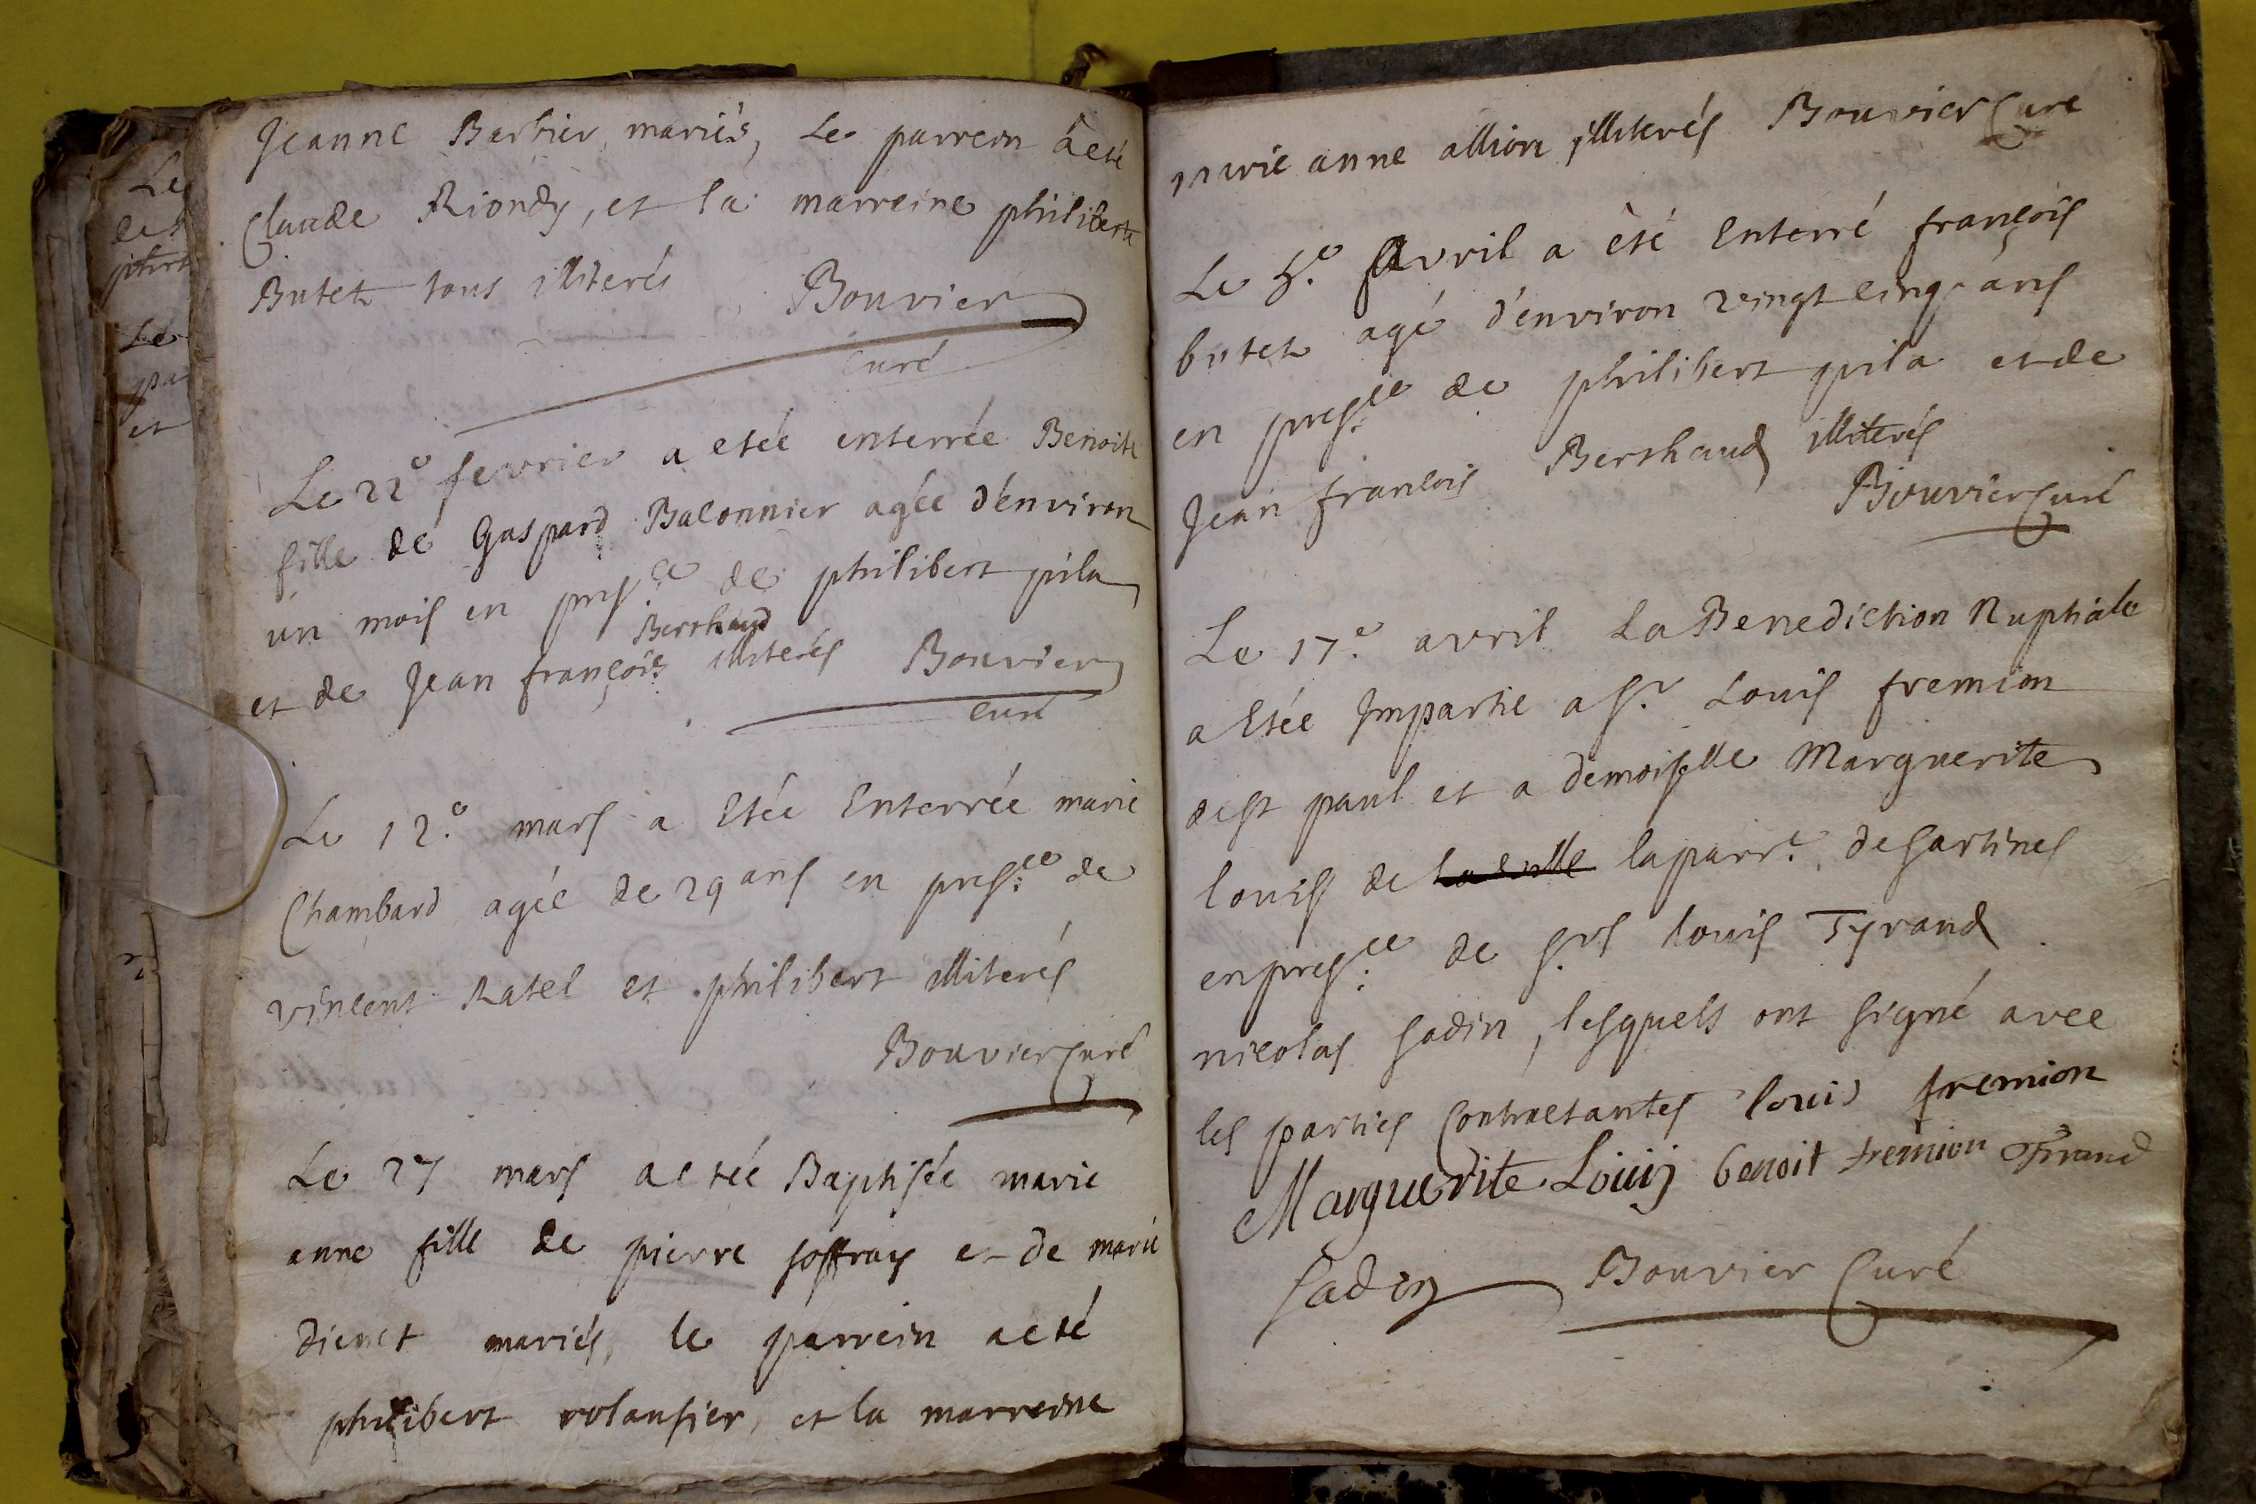 Jeanne Barbier, mariés, Le parrein a eté
Claude Riondy, et la marreine philiberte
Butet tous illiterés Bouvier
curé
Le 22e fevrier a etée enterrée Benoite
fille de Gaspard Baconnier agée d'environ
un mois en presce de philibert pila
Berthaud
et de Jean françois illiterés Bouvier
curé
Le 12e mars a Etée Enterrée marie
Chambard agée de 29 ans en presce de
vincent Ratel et philibert illiterés
Bouvier Curé
Le 27 mars a etée Baptisée marie
anne fille de pierre soffray et de marie
dienet mariés, le parrein a eté
philibert volanfier, et la marreine
marie anne allion illiterés Bouvier Curé
Le 5e Avril a été Enterré françois
butet agé d'environ vingt cinq ans
en presce de philibert pila et de
Jean francois Berthaud illiterés
Bouvier Curé
Le 17e avril La Benediction Nuptiale
a Etée Impartie a sr Louis fremion
de st paul et a demoiselle Marguerite
louis de la ville la parre de sartines
en presce de srs louis Tyrand
nicolas sadin, lesquels ont signé avec
les parties Contractantes louis fremion
Marguerite Louis benoit fremion Tirand
sadin Bouvier Curé